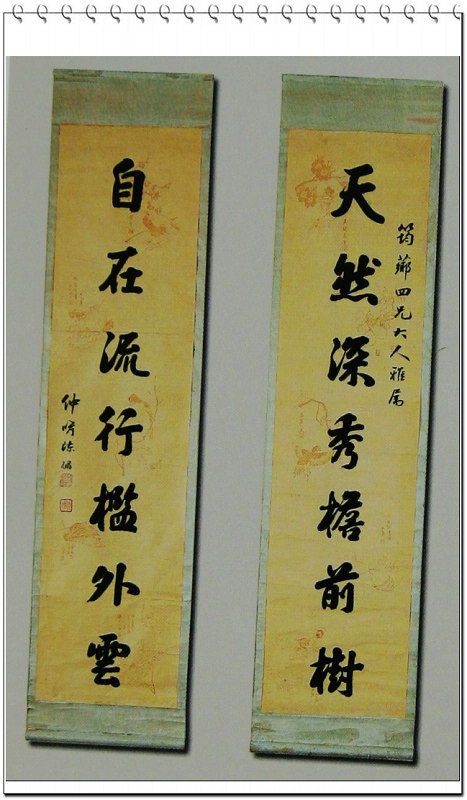 筠薌四兄大人雅属
天然深秀檐前樹
自在流行檻外雲
仲